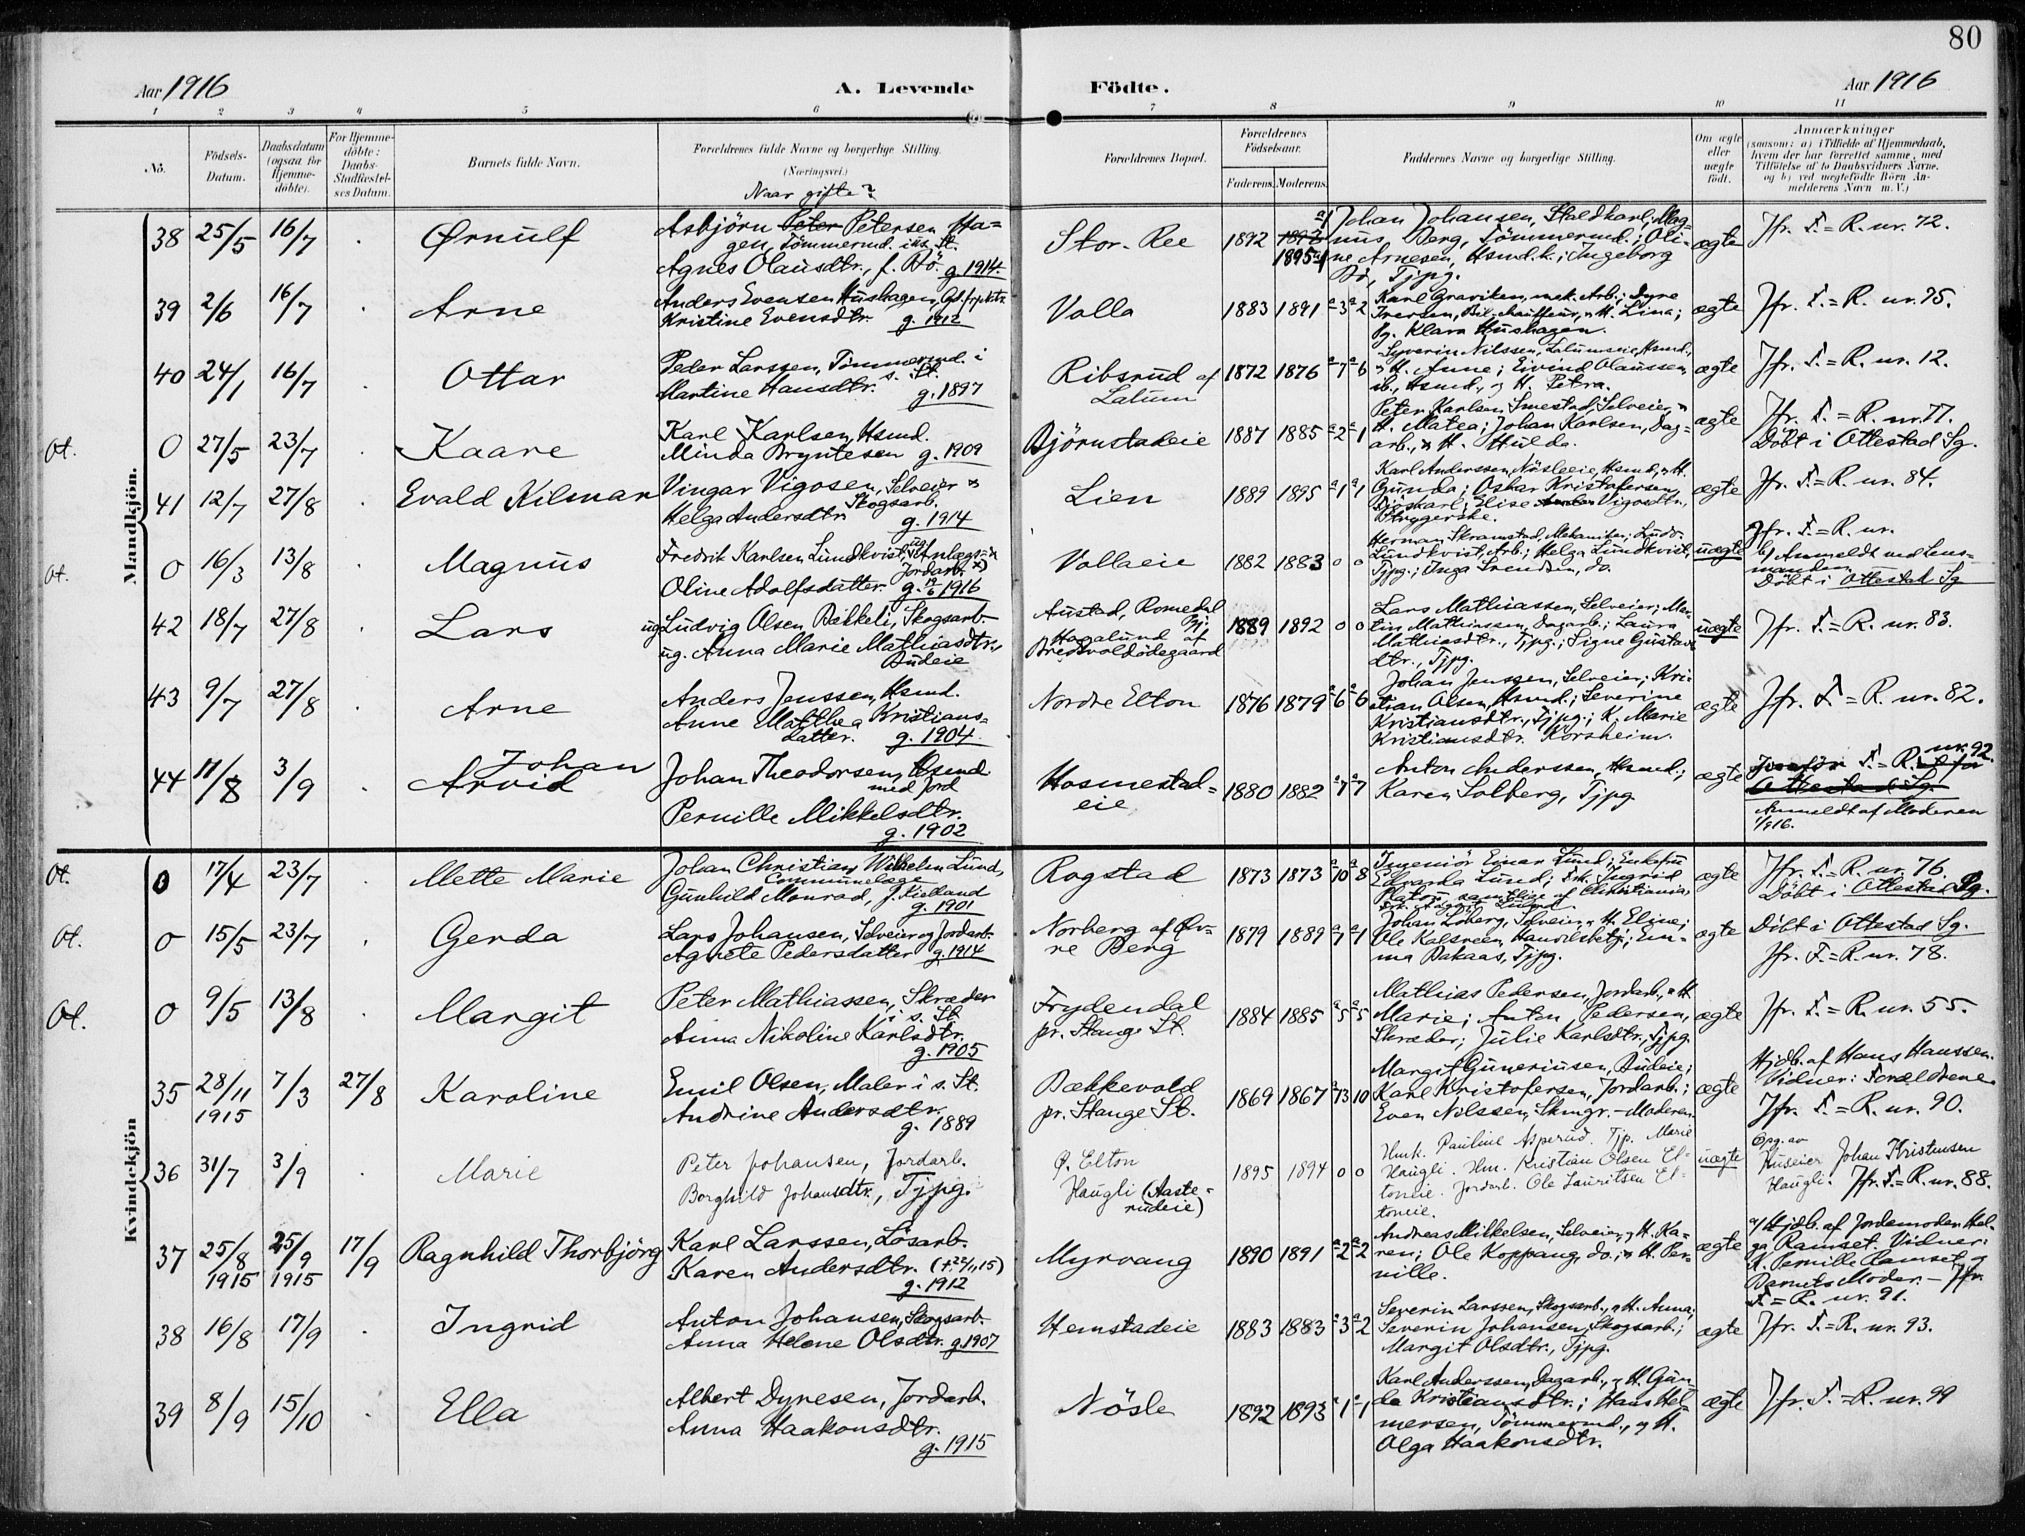 80
Aar 1916
A. Levende
Födte.
Aar 1916
1 2 3 4 5 6 7 8 9 10 11
Nö.
Födsels-
Datum.
Daabsdatum
(ogsaa for
Hjemme-
döbte).
For Hjemme-
döbte:
Daabs-
Stadfæstel-
ses Datum.
Barnets fulde Navn.
Forældrenes fulde Navne og borgerlige Stilling.
(Næringsvei.)
Naar gifte?
Forældrenes Bopæl.
Forældrenes
Födselsaar.
Faderens. Moderens.
Faddernes Navne og borgerlige Stilling.
Om ægte
eller
uægte
födt.
Anmærkninger
(saasom: a) i Tilfælde af Hjemmedaab,
hvem der har forrettet samme, med
Tilföielse af to Daabsvidners Navne.
og b) ved uægtefödte Börn An-
melderens Navn m. V.)
Mandkjön.
38 25/5 16/7 Ørnulf
Asbjörn Peter Petersen Ha-
gen, Tömmermd. i s. St.
Agnes Olausdtr., f. Bö. g. 1914.
Stor-Ree
1892 1893
1895
Johan Johansen, Staldkarl; Mag-
nus Berg, Tömmermd.; Oli-
ne Arnesen, Hsmd.k.; Ingeborg
Bö, Tjpg.
ægte
Jfr. F.=R. nr. 72.
39 2/6 16/7 Arne
Anders Evensen Hushagen,
Kristine Evensdtr. g. 1912
Volla
1883 1891 3 2
Karl Graviken, mek. Arb.; Dyre
Iversen, Bil-chauffeur, & H. Lina;
Pg. Klara Hushagen.
ægte
Jfr. F.=R. nr. 75.
40 24/1 16/7 Ottar
Peder Larssen, Tömmermd. i
s. St.
Martine Hansdtr. g. 1897
Ribsrud af
Lalum
1872 1876 7 6
Syverin Nilssen, Lalumseie, Hsmd.,
& H. Anne; Eivind Olaussen,
ib., Hsmd., og H. Petra.
ægte
Jfr. F.=R. nr. 12.
Ot. 0 27/5 23/7 Kaare
Karl Karlsen, Hsmd.
Minda Bryntesen g. 1909
Björnstadeie
1887 1885 2 1
Peter Karlsen Smestad, Selveier &
H. Matea; Johan Karlsen, Dag-
arb., & H. Hulda.
ægte
Jfr. F.=R. nr. 77.
Döbt i Ottestad Sg.
41 12/7 27/8 Evald Hilmar
Vingar Vigosen, Selveier &
Skogsarb.
Helga Andersdtr. g. 1914
Lien
1889 1895 1 1
Karl Anderssen, Nösleeie, Hsmd., & H.
Gunda; Oskar Kristofersen,
Elise Vigosdtr.,
Strygerske.
ægte
Jfr. F.=R. nr. 84.
Ot. 0 16/3 13/8 Magnus
Fredrik Karlsen Lundkvist, Anlægs- &
Jordarb.
Oline Adolfsdatter. g. 19/6 1916
Vollaeie
1882 1883 0 0
Herman Skramstad, Mekaniker; Ludv.
Lundkvist, Arb.; Helga Lundkvist,
Tjpg.; Inga Svendsen, do.
uægte
Jfr. F.=R. nr.
b) Anmeldt ved Lens-
manden.
Döbt i Ottestad Sg
42 18/7 27/8 Lars
ug. Ludvig Olsen Bækkeli, Skogsarb.
ug. Anna Marie Mathiasdtr.,
Budeie
Austad, Romedal
Hagalund af
Bredvoldödegaard
1889 1892 0 0
Lars Mathiassen, Selveier; Mar-
tin Mathiassen, Dagarb.; Laura
Mathiasdtr., Tjpg.; Signe Gustavs-
dtr., Tjpg.
uægte
Jfr. F.=R. nr. 83.
43 9/7 27/8 Arne
Anders Jenssen, Hsmd.
Anne Matthea Kristians-
datter. g. 1904.
Nordre Elton
1876 1879 6 6
Johan Jenssen, Selveier; Kri-
stian Olsen, Hsmd.; Severine
Kristiansdtr., Tjpg.; K. Marie
Kristiansdtr. Korsheim.
ægte
Jfr. F.=R. nr. 82.
44 11/8 3/9 Johan
Arvid
Johan Theodorsen, Hsmd
med Jord
Pernille Mikkelsdtr.
g. 1902
Hosmestad-
eie
1880 1882 7 7
Anton Anderssen, Hsmd.;
Karen Solberg, Tjpg.
ægte
F.=R. nr. 92.
Anmeldt af Moderen
1/9 16.
Kvindekjön
Ot. 0 17/4 23/7 Mette Marie
Johan Christian Wilhelm Lund,
Communelæge
Gunhild Monrad, f. Kielland
g. 1901
Rogstad
1873 1873 10 8
Ingeniör Einar Lund; Enkefru
Edvarda Lund; Frk. Ingrid
samtlige af Christiania;
ægte
Jfr. F.=R. nr. 76.
Döbt i Ottestad Sg.
Ot. 0 15/5 23/7 Gerda
Lars Johansen, Selveier og Jordarb.
Agnete Pedersdatter g. 1914
Norberg af Öv-
re Berg
1879 1889 1 1
Johan Löberg, Selveier, & H. Eline;
Ole Kalsveen, Handelsbetj.; Em-
ma Bakaas, Tjpg.
ægte
Döbt i Ottestad Sg.
Jfr. F.=R. nr. 78.
Ot. 0 9/5 13/8 Margit
Peter Mathiassen, Skræder
i s. St.
Anna Nikoline Karlsdtr.
g. 1905
Frydendal
pr. Stange St.
1884 1885 5 5
Mathias Pedersen, Jordarb., & H.
Marie; Anton Pedersen,
Skræder; Julie Karlsdtr., Tjpg.
ægte
Jfr. F.=R. nr. 55.
35 28/11
1915
7/3 27/8 Karoline
Emil Olsen, Maler i s. St.
Andrine Andersdtr.
g. 1889
Bækkevold
pr. Stange St.
1869 1867 13 10
Margit Guneriusen, Budeie;
Karl Kristofersen, Jordarb.;
Even Nilssen, Skmgr. – Moderen
ægte
Hjdb. af Hans Hanssen.
Vidner: Forældrene.
Jfr. F.=R. nr. 90.
36 31/7 3/9 Marie
Peter Johansen, Jordarb.
Borghild Johansdtr., Tjpg.
Ø. Elton
Haugli (Aaste-
rudeie)
1895 1894 0 0
Hmk. Pauline Asperud. Tjp. Marie
Haugli. Hm. Kristian Olsen El-
toneie. Jordarb. Ole Lauritsen El-
toneie.
uægte
Opg. av
Huseier Johan Kristensen
Haugli. Jfr. F.=R. nr. 88.
37 25/8
1915
25/9
1915
17/9 Ragnhild Thorbjörg
Karl Larssen, Lösarb.
Karen Andersdtr. (+ 22/11 15)
g. 1912
Myrvang
1890 1891 2 2
Andreas Mikkelsen, Selveier, & H. Ka-
ren; Ole Koppang, do.; & H. Per-
nille.
ægte
a) Hjdb. af Jordemoder Hel-
ga Ramset. Vidner:
K. Pernille Ramset og
Barnets Moder. – Jfr.
F.=R. nr. 91.
38 16/8 17/9 Ingrid
Anton Johansen, Skogsarb.
Anna Helene Olsdtr. g. 1907
Hemstadeie
1883 1883 3 2
Severin Larssen, Skogsarb., & H. Anna;
Severin Johansen, Skogsarb.;
Margit Olsdtr., Tjpg.
ægte
Jfr. F.=R. nr. 93.
39 8/9 15/10 Ella
Albert Dyresen, Jordarb.
Anna Haakonsdtr.
g. 1915
Nösle
1892 1893 1 1
Karl Anderssen, Dagarb., & H. Gun-
da Kristiansdtr.; Hans Hel-
mersen, Tömmermd., & H.
Olga Haakonsdtr.
ægte
Jfr. F.=R. nr. 99